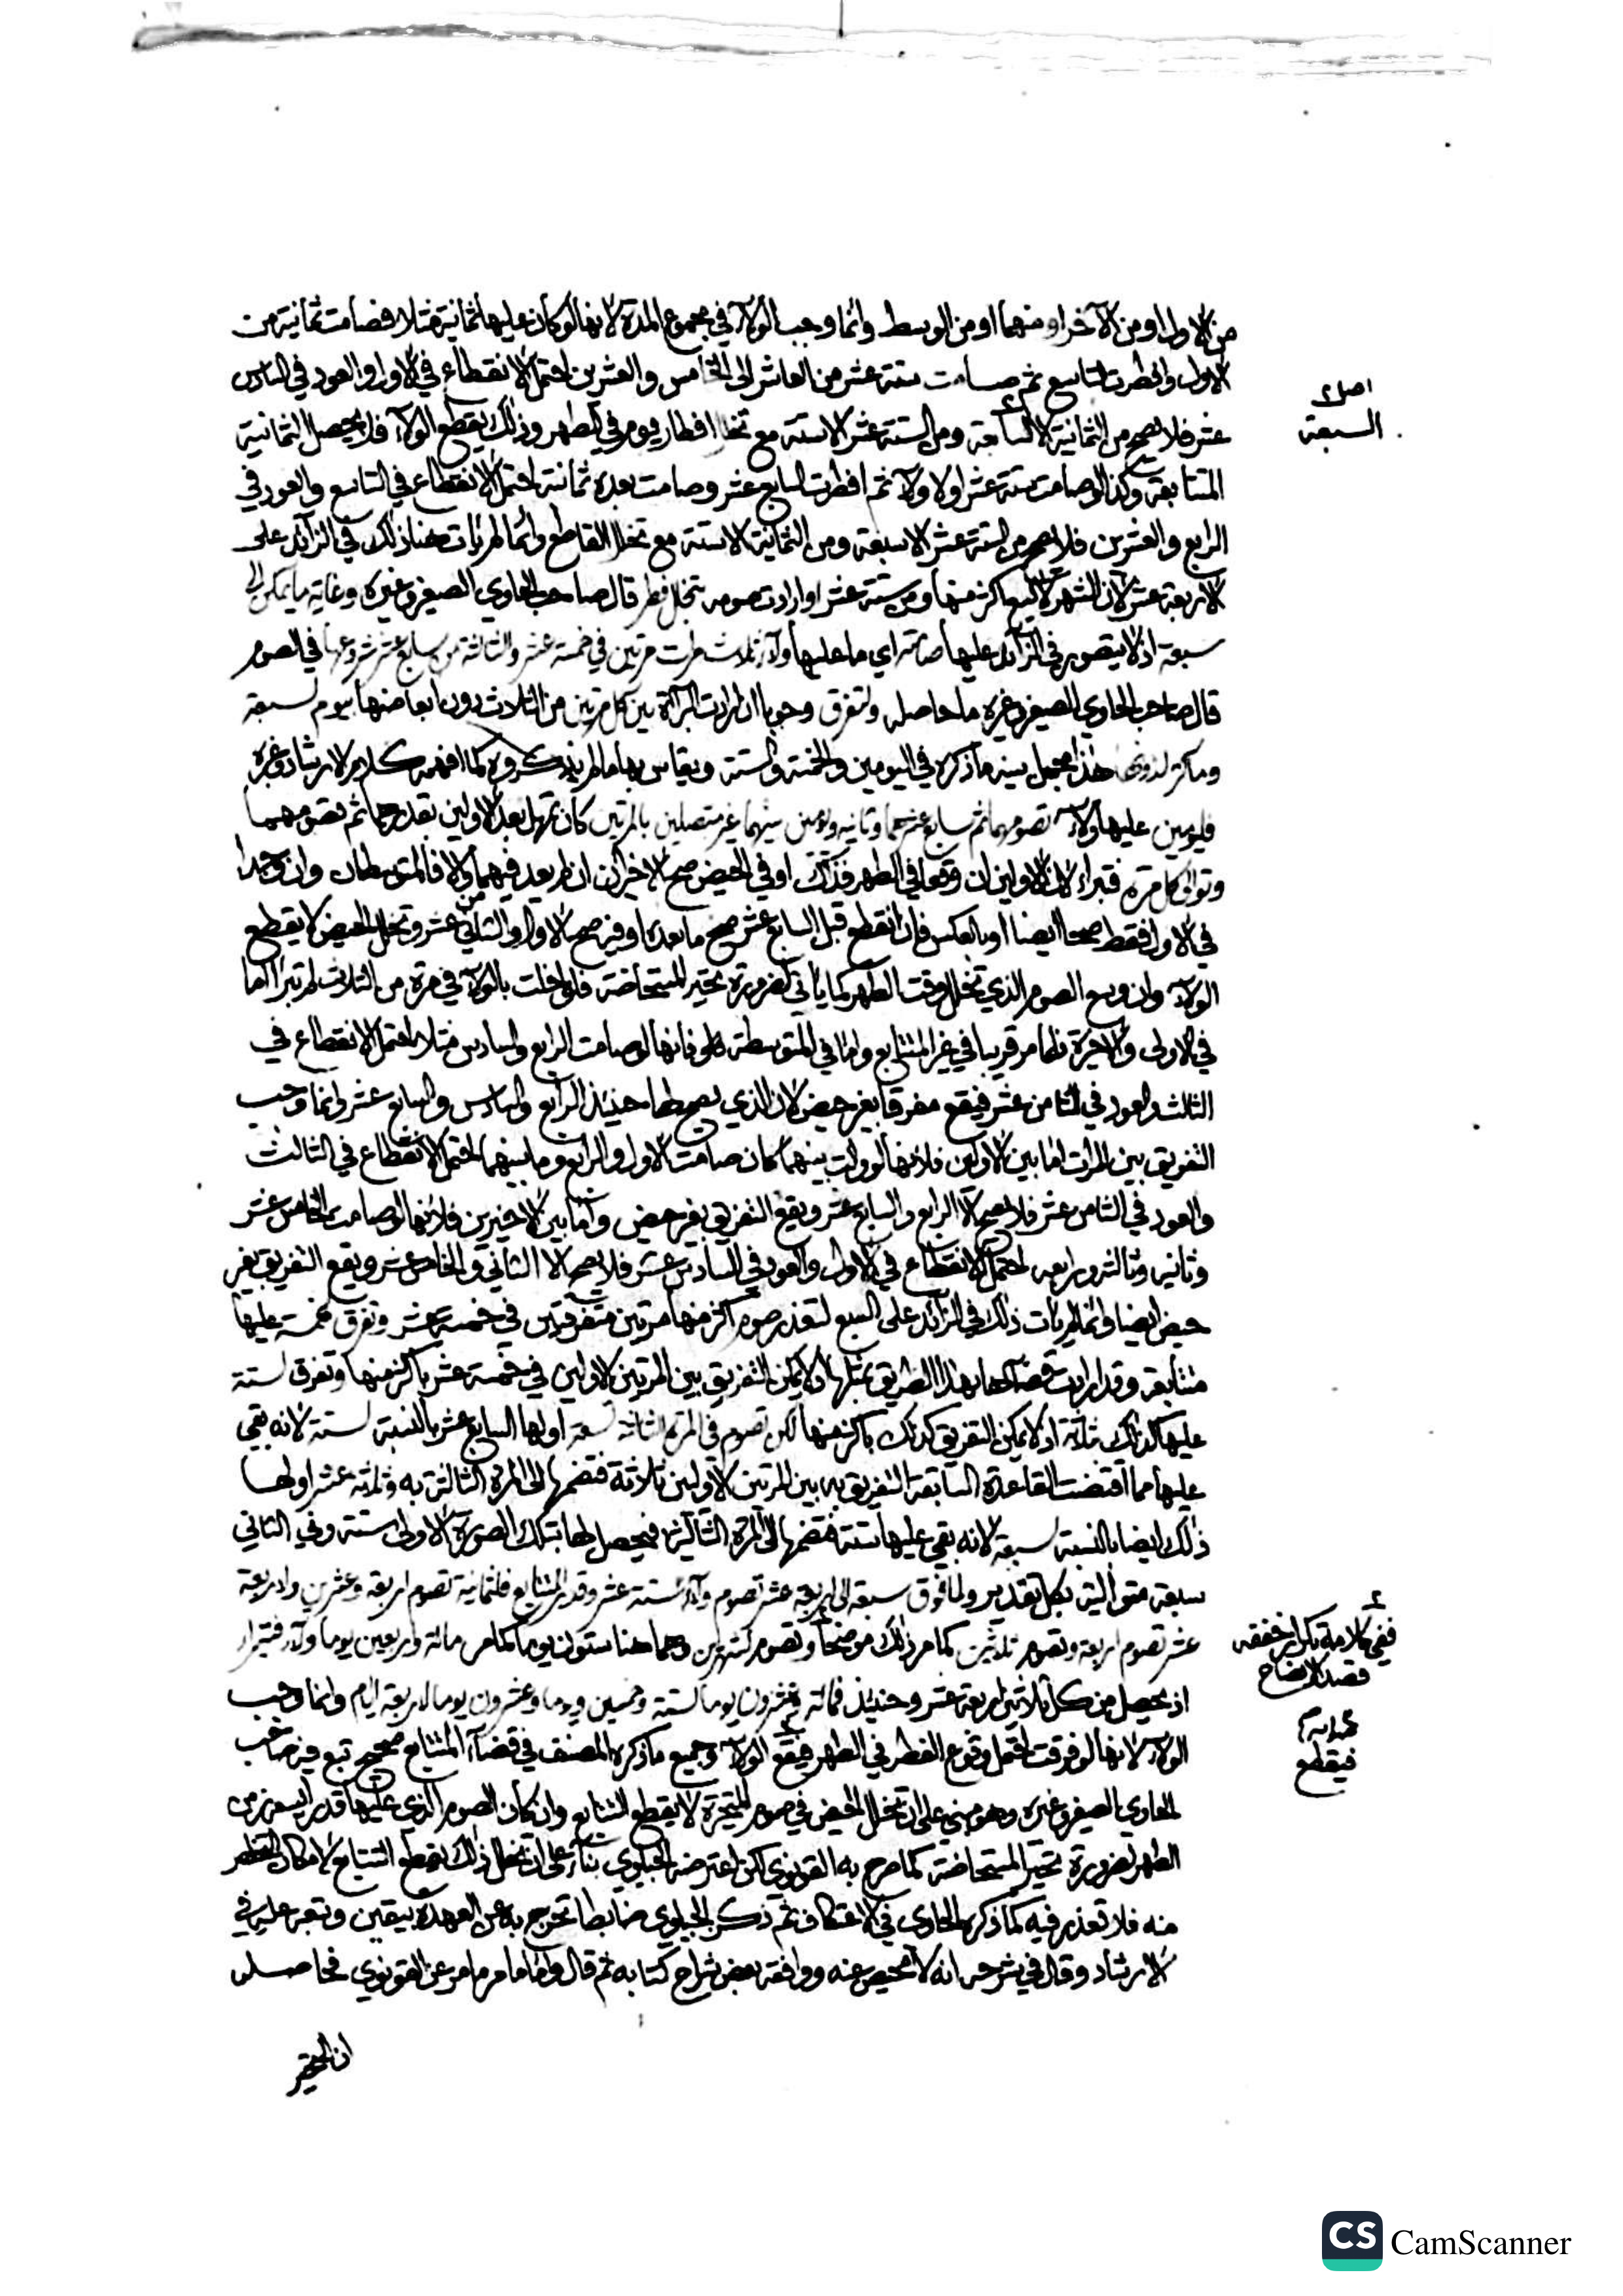 من الاول او من الآخر او منهما او من الوسط وانما وجب الولآء في مجموع المدة لانها لو كان عليها ثمانية مثلا فصامت ثمانية من
الاول وافطرت التاسع ثم صامت ستة عشر من العاشر الى الخامس والعشرين احتمل الانقطاع في الاول والعود في السادس
عشر فلا يصح من الثمانية الا السابعة ومن الستة عشر الا ستة مع تخلل افطار يوم في الطهر وذلك يقطع الولآء فلا يحصل الثمانية
المتتابعة وكذا لو صامت ستة عشر اولا ولآء ثم افطرت السابع عشر وصامت بعده ثمانية احتمل الانقطاع في التاسع والعود في
الرابع والعشرين فلا يصح من الستة عشر الا سبعة ومن الثمانية الا ستة مع تخلل القاطع وانما لم يأت هنا ذلك في الزآئد على
الاربعة عشر لان الشهر لا يسع اكثر منها ومن ستة عشر او ارادت صومه بتخلل فطر قال صاحب الحاوي الصغير وغيره وغاية ما يمكن الى
سبعة اذ لا يتصور في الزآئد عليها صامته اي ما عليها ولآء ثلاث مرات مرتين في خمسة عشر والثالثة من سابع عشر شروعها في الصوم
قال صاحب الحاوي الصغير وغيره ما حاصله ولتفرق وجوبا ان ارادت البرآءة بين كل مرتين من الثلاث دون ابعاضها بيوم لسبعة
هذا مجمل بينه ما ذكره في اليومين والخمسة والستة ويقاس بها ما لم يذكروه كما افهمه كلام الارشاد وغيره
فليومين عليها ولآء تصومهما ثم سابع عشرهما وثانيه ويومين بينهما غير متصلين بالمرتين كأن تمهل بعد الاولين بقدرهما ثم تصومهما
وتوالي كل مرة فتبرأ لان الاولين ان وقعا في الطهر فذاك او في الحيض صح الاخيران ان لم يعد فيهما والا فالمتوسطان وان وجدا
في الاول فقط صحا ايضا او بالعكس فان انقطع قبل السابع عشر صح ما بعده او فيه صح الاول والثامن عشر وتخلل الحيض لا يقطع
الولآء وان وسع الصوم الذي تخلله وقت الطهر كما يأتي لضرورة تحير المستحاضة فلو اخلت بالولآء في مرة من الثلاث لم تبرأ اما
في الاولى والاخيرة فلما مر قريبا في غير المتتابع واما في المتوسطة فلانها لو صامت الرابع والسادس مثلا احتمل الانقطاع في
الثالث والعود في الثامن عشر فيقع مفرقا بغير حيض لان الذي يصح لها حينئذ الرابع والسادس والسابع عشر وانما وجب
التفريق بين المرات اما بين الاوليين فلانها لو والت بينهما كأن صامت الاول والرابع وما بينهما احتمل الانقطاع في الثالث
والعود في الثامن عشر فلا يصح الا الرابع والسابع عشر ويقع التفريق بغير حيض واما بين الاخيرين فلانها لو صامت الخامس عشر
وثانيه وثالثه ورابعه احتمل الانقطاع في الاول والعود في السادس عشر فلا يصح الا الثاني والخامس عشر ويقع التفريق بغير
حيض ايضا وانما لم يأت ذلك في الزآئد على السبع لتعذر صوم اكثر منها مرتين متفرقتين في خمسة عشر وتفرق لخمسة عليها
متتابعة وقد ارادت قضآءها بهذا الطريق بمثلها اذ لا يمكن التفريق بين المرتين الاوليين في خمسة عشر باكثر منها وتفرق لستة
عليها كذلك بثلاثة اذ لا يمكن التفريق كذلك باكثر منها لكن تصوم في المرة الثالثة تسعة اولها السابع عشر بالنسبة لستة لانه بقي
عليها مما اقتضت القاعدة السابقة التفريق به بين المرتين الاوليين ثلاثة فتضمها الى المرة الثالثة وثلثة عشر اولها
ذلك ايضا بالنسبة لسبعة لانه بقي عليها ستة فتضمها الى المرة الثالثة فيحصل لها بتلك الصورة الاولى ستة وفي الثاني
سبعة متوالية بكل تقدير ولما فوق سبعة الى اربعة عشر تصوم ولآء ستة عشر وقدر المتتابع فلثمانية تصوم اربعة وعشرين ولاربعة
عشر تصوم اربعة وتصوم ثلاثين كما مر ذلك موضحا وتصوم لشهرين وهما هنا ستون يوما كما مر مائة واربعين يوما ولآء فتبرأ
اذ يحصل من كل ثلاثين اربعة عشر وحينئذ فمائة وعشرون يوما لستة وخمسين يوما وعشرون يوما لاربعة ايام وانما وجب
الولآء لانها لو فرقت احتمل وقوع الفطر في الطهر فيقع الولآء وجميع ما ذكره المصنف في قضآء المتتابع صحيح تبع فيه صاحب
الحاوي الصغير وغيره وهو مبني على ان تخلل الحيض في صوم المتحيرة لا يقطع التتابع وان كان الصوم الذي عليها قدرا يسعه زمن
الطهر لضرورة تحير المستحاضة كما صرح به القونوي لكن اعترضه الجيلوي بنآء على ان تخلل ذلك يقطع التتابع لامكان التطهر
منه فلا تعذر فيه كما ذكره الحاوي في الاعتكاف ثم ذكر الجيلوي ضابطا تخرج به عن العهدة بيقين وتبعه عليه في
الارشاد وقال في شرحه انه لا محيص عنه ووافقه بعض شراح كتابه ثم قال واما ما مر عن القونوي فحاصله
ان التحير
اصل
السبعة
ففي كلامه تكرار خففه
قصد الايضاح
فيقطع
CS CamScanner